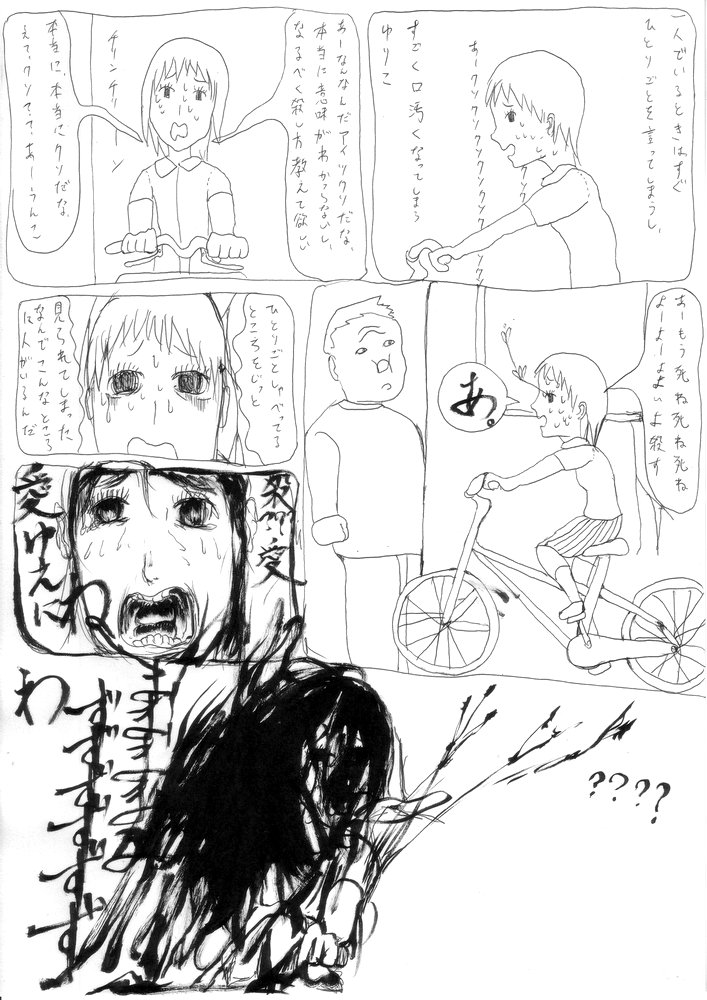 一人でいるときはすぐ
ひとりごとを言ってしまうし、
あークソクソクソクソクソクソクソクソクソ
すごく口汚くなってしまう
ゆりこ
あーなんなんだアイツクソだな、
本当に意味がわかっらないし、
なるべく殺し方教えて欲しい
チリンチリーン
本当に、本当にクソだな。
えて、クソて、て、あーうんこ
あーもう死ね死ね死ね
よーよーよよいよ殺す
あ。
ひとりごとしゃべってる
ところをじっと
見られてしまった
なんでこんなところ
に人がいるんだ
愛ゆえに
わ
????